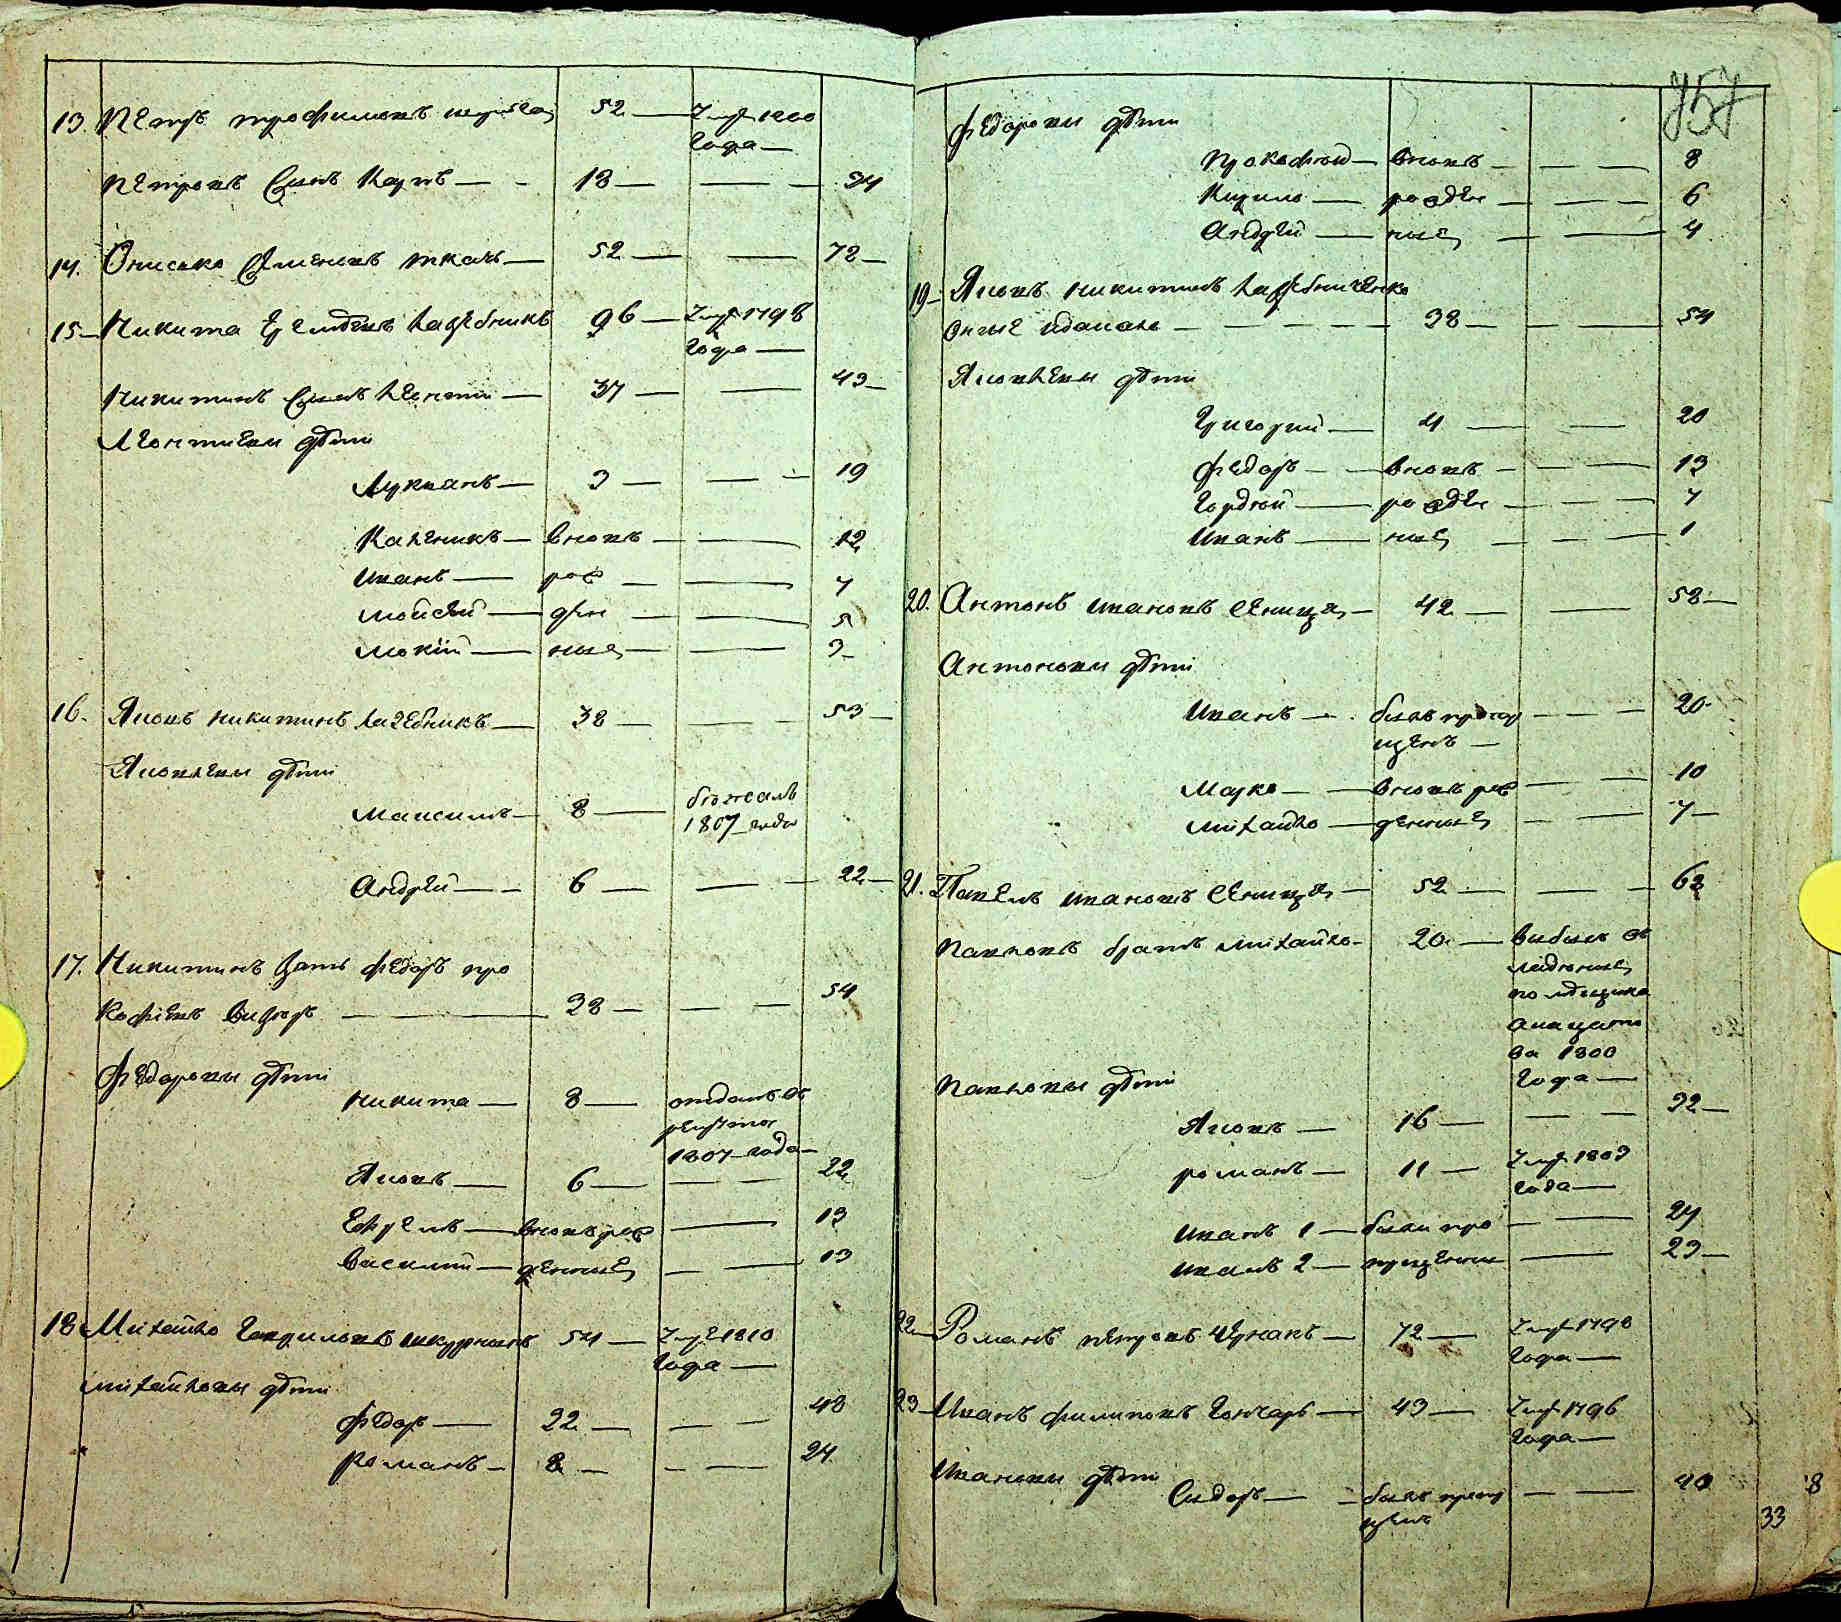 13. Петръ трофимовъ 52 — Умре 1800
года —
петровъ Сынъ Карпъ — 18 — — 34
14. Онисько Семеновъ ткачь — 52 — — 72 —
15 — Никита лазебникъ 96 — Умре 1798
года —
Никитинъ Сынъ леонтій — 37 — — 49 —
Леонтиевы дѣти
Лукьянъ — 3 — — 19
Каленикъ — вновь — — 12
иванъ — рож — — 7
мойсей — ден — — 5
мокій — ные — — 3 —
16. Яковъ никитинъ лазебникъ — 38 — — 53 —
Яковлевы дѣти
максимъ — 8 — бежалъ
1807 года
андрей — 6 — — 22 —
17. Никитинъ зять федоръ про
кофіевъ — 38 — — 54
федоровы дѣти
никита — 8 — отданъ въ
рекруты
1807 года —
Яковъ — 6 — — 22
Ефремъ — вновь рож — 13
василий — денные — 13
18 Михайло Гавриловъ 54 — Умре 1810
года —
михайловы дѣти
федоръ — 22 — — 40
романъ — 8 — — 24
757
федоровы дѣти
прокофий — вновь — — 8
кирило — рожден — — 6
андрей — ные — — 4
19 — Яковъ никитинъ лазебниченко
онже — 38 — — 54
Яковлевы дѣти
Григорий — 4 — — 20
федоръ — вновь — — 13
гордѣй — рожден — — 7
иванъ — ные — — 1
20. Антонъ ивановъ сеница — 42 — — 58 —
Антоновы дѣти
иванъ — былъ пропу
щенъ — — 20
марко — вновь рож — 10
михайло — денные — 7 —
21. Павелъ ивановъ сеница — 52 — — 68
павловъ братъ михайло — 20 — выбылъ въ
помѣщика
за 1800
года —
павловы дѣти
Яковъ — 16 — — 32 —
романъ — 11 — Умре 1803
года —
иванъ 1 — были про — 24
иванъ 2 — пущенны — 23 —
22 — Романъ петровъ 72 — Умре 1798
года —
23 — Иванъ филиповъ гончаръ — 43 — Умре 1796
года —
ивановы дѣти
Сидоръ — былъ пропу — 40
щенъ
8
33